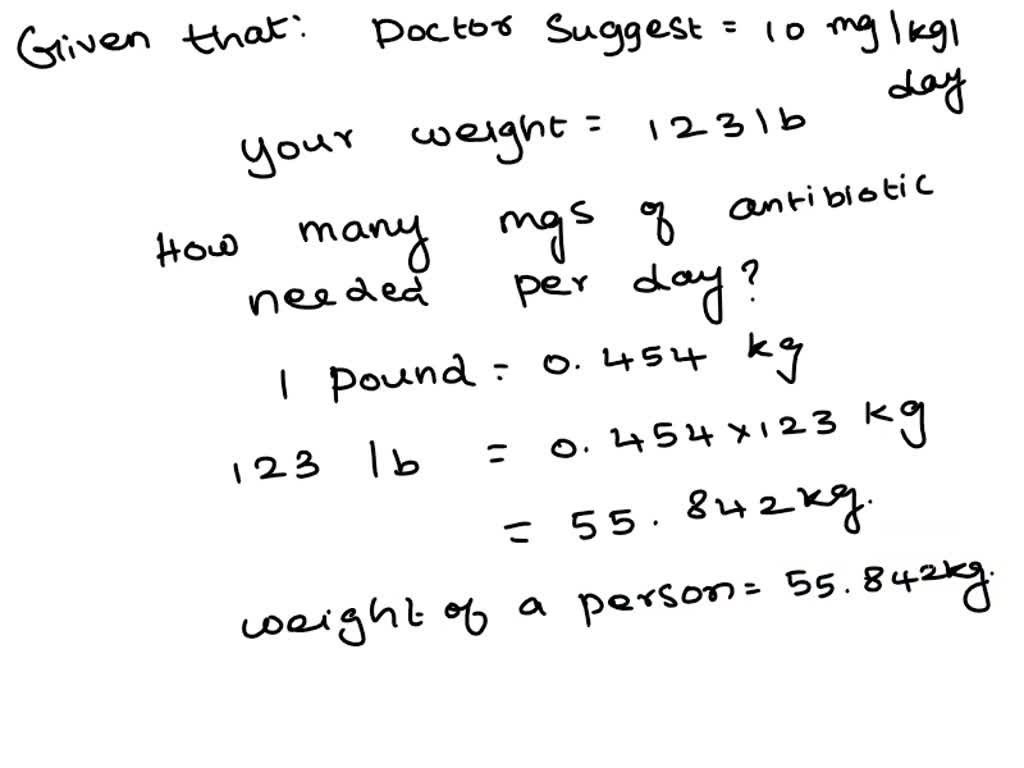 Given that: Doctor Suggest = 10 mg/kg/
day
your weight = 123 lb
How many mgs of antibiotic
needed per day?
1 pound = 0.454 kg
123 lb = 0.454 × 123 kg
= 55.842 kg.
weight of a person = 55.842 kg.